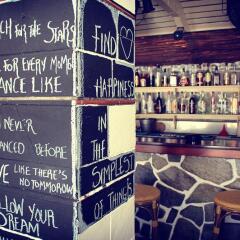 CH FOR THE STARS
FOR EVERY MOME
ANCE LIKE
NEVER
ANCED BEFORE
VE LIKE THERE'S
NO TOMMOROW
FOLLOW YOUR
DREAM
FIND
HAPPINESS
IN
THE
SIMPLEST
OF THINGS